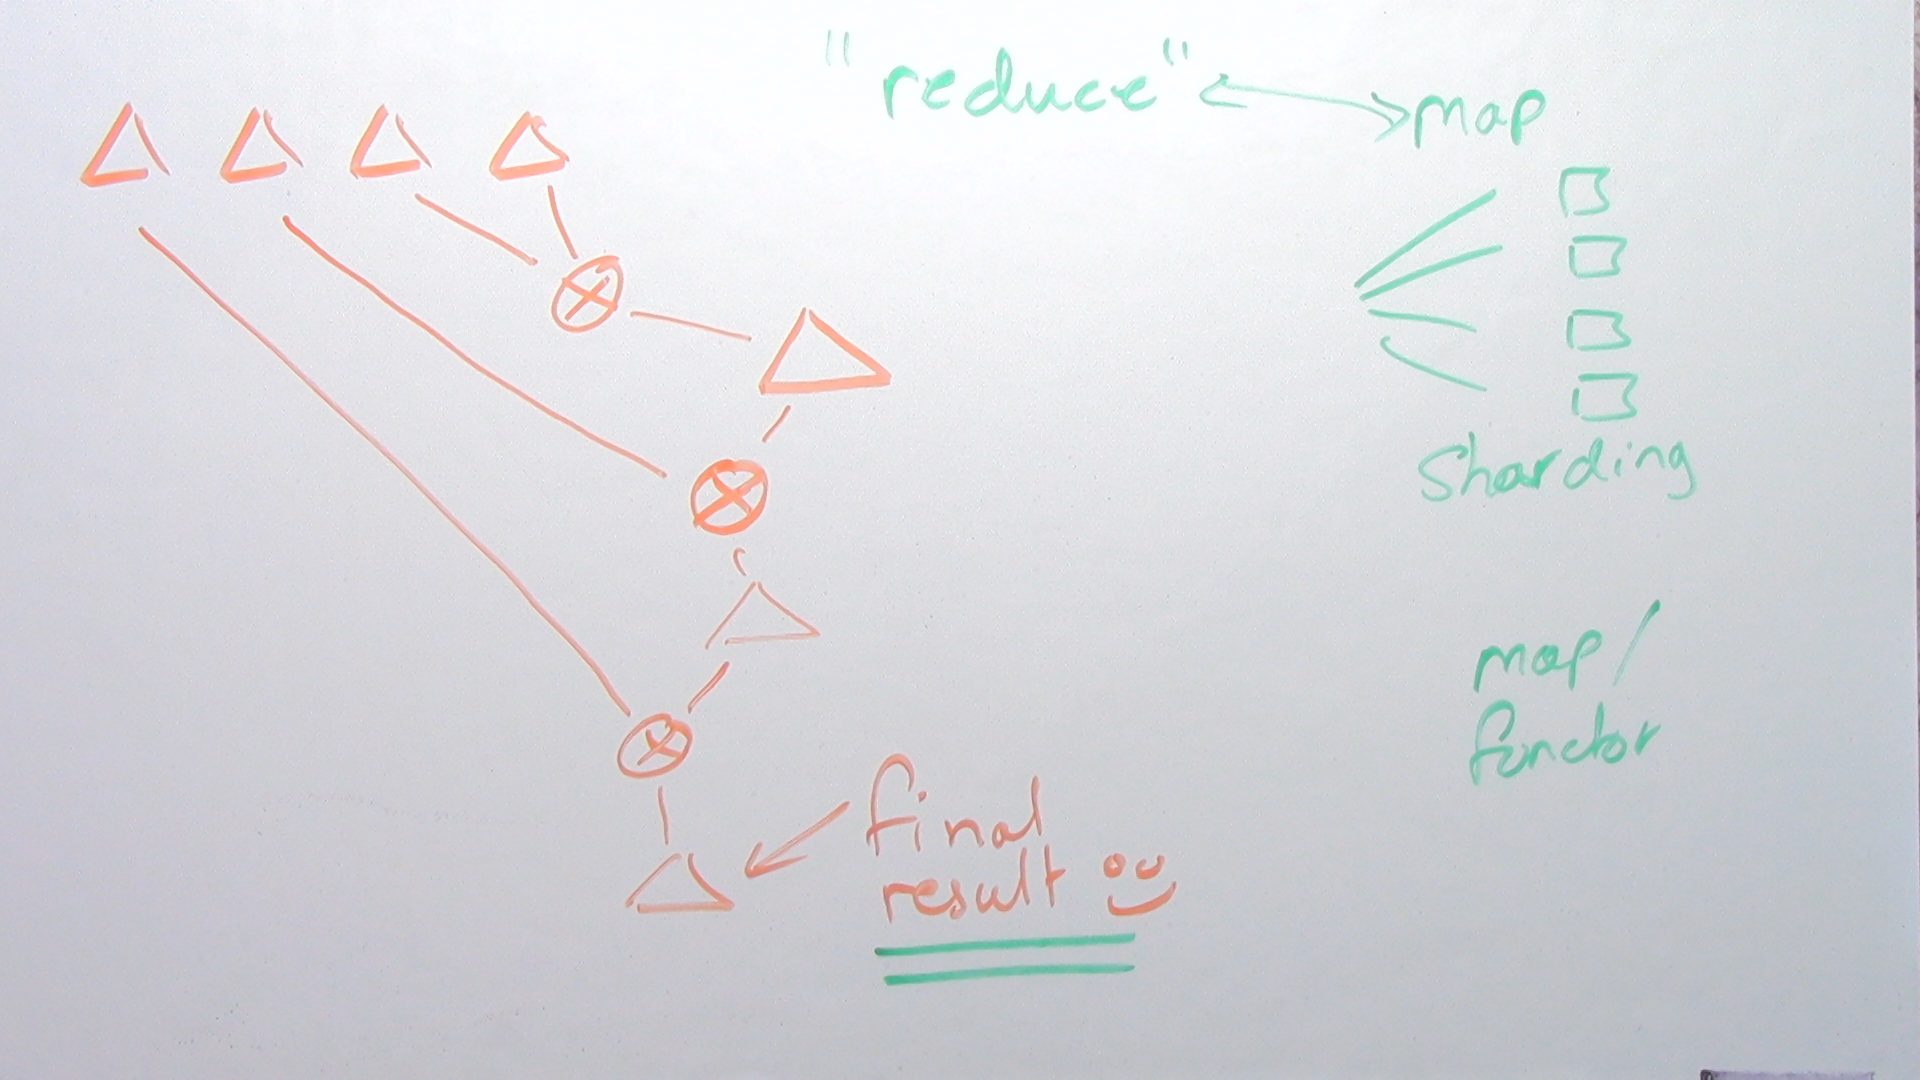 "reduce"
map
Sharding
map/
functor
final
result